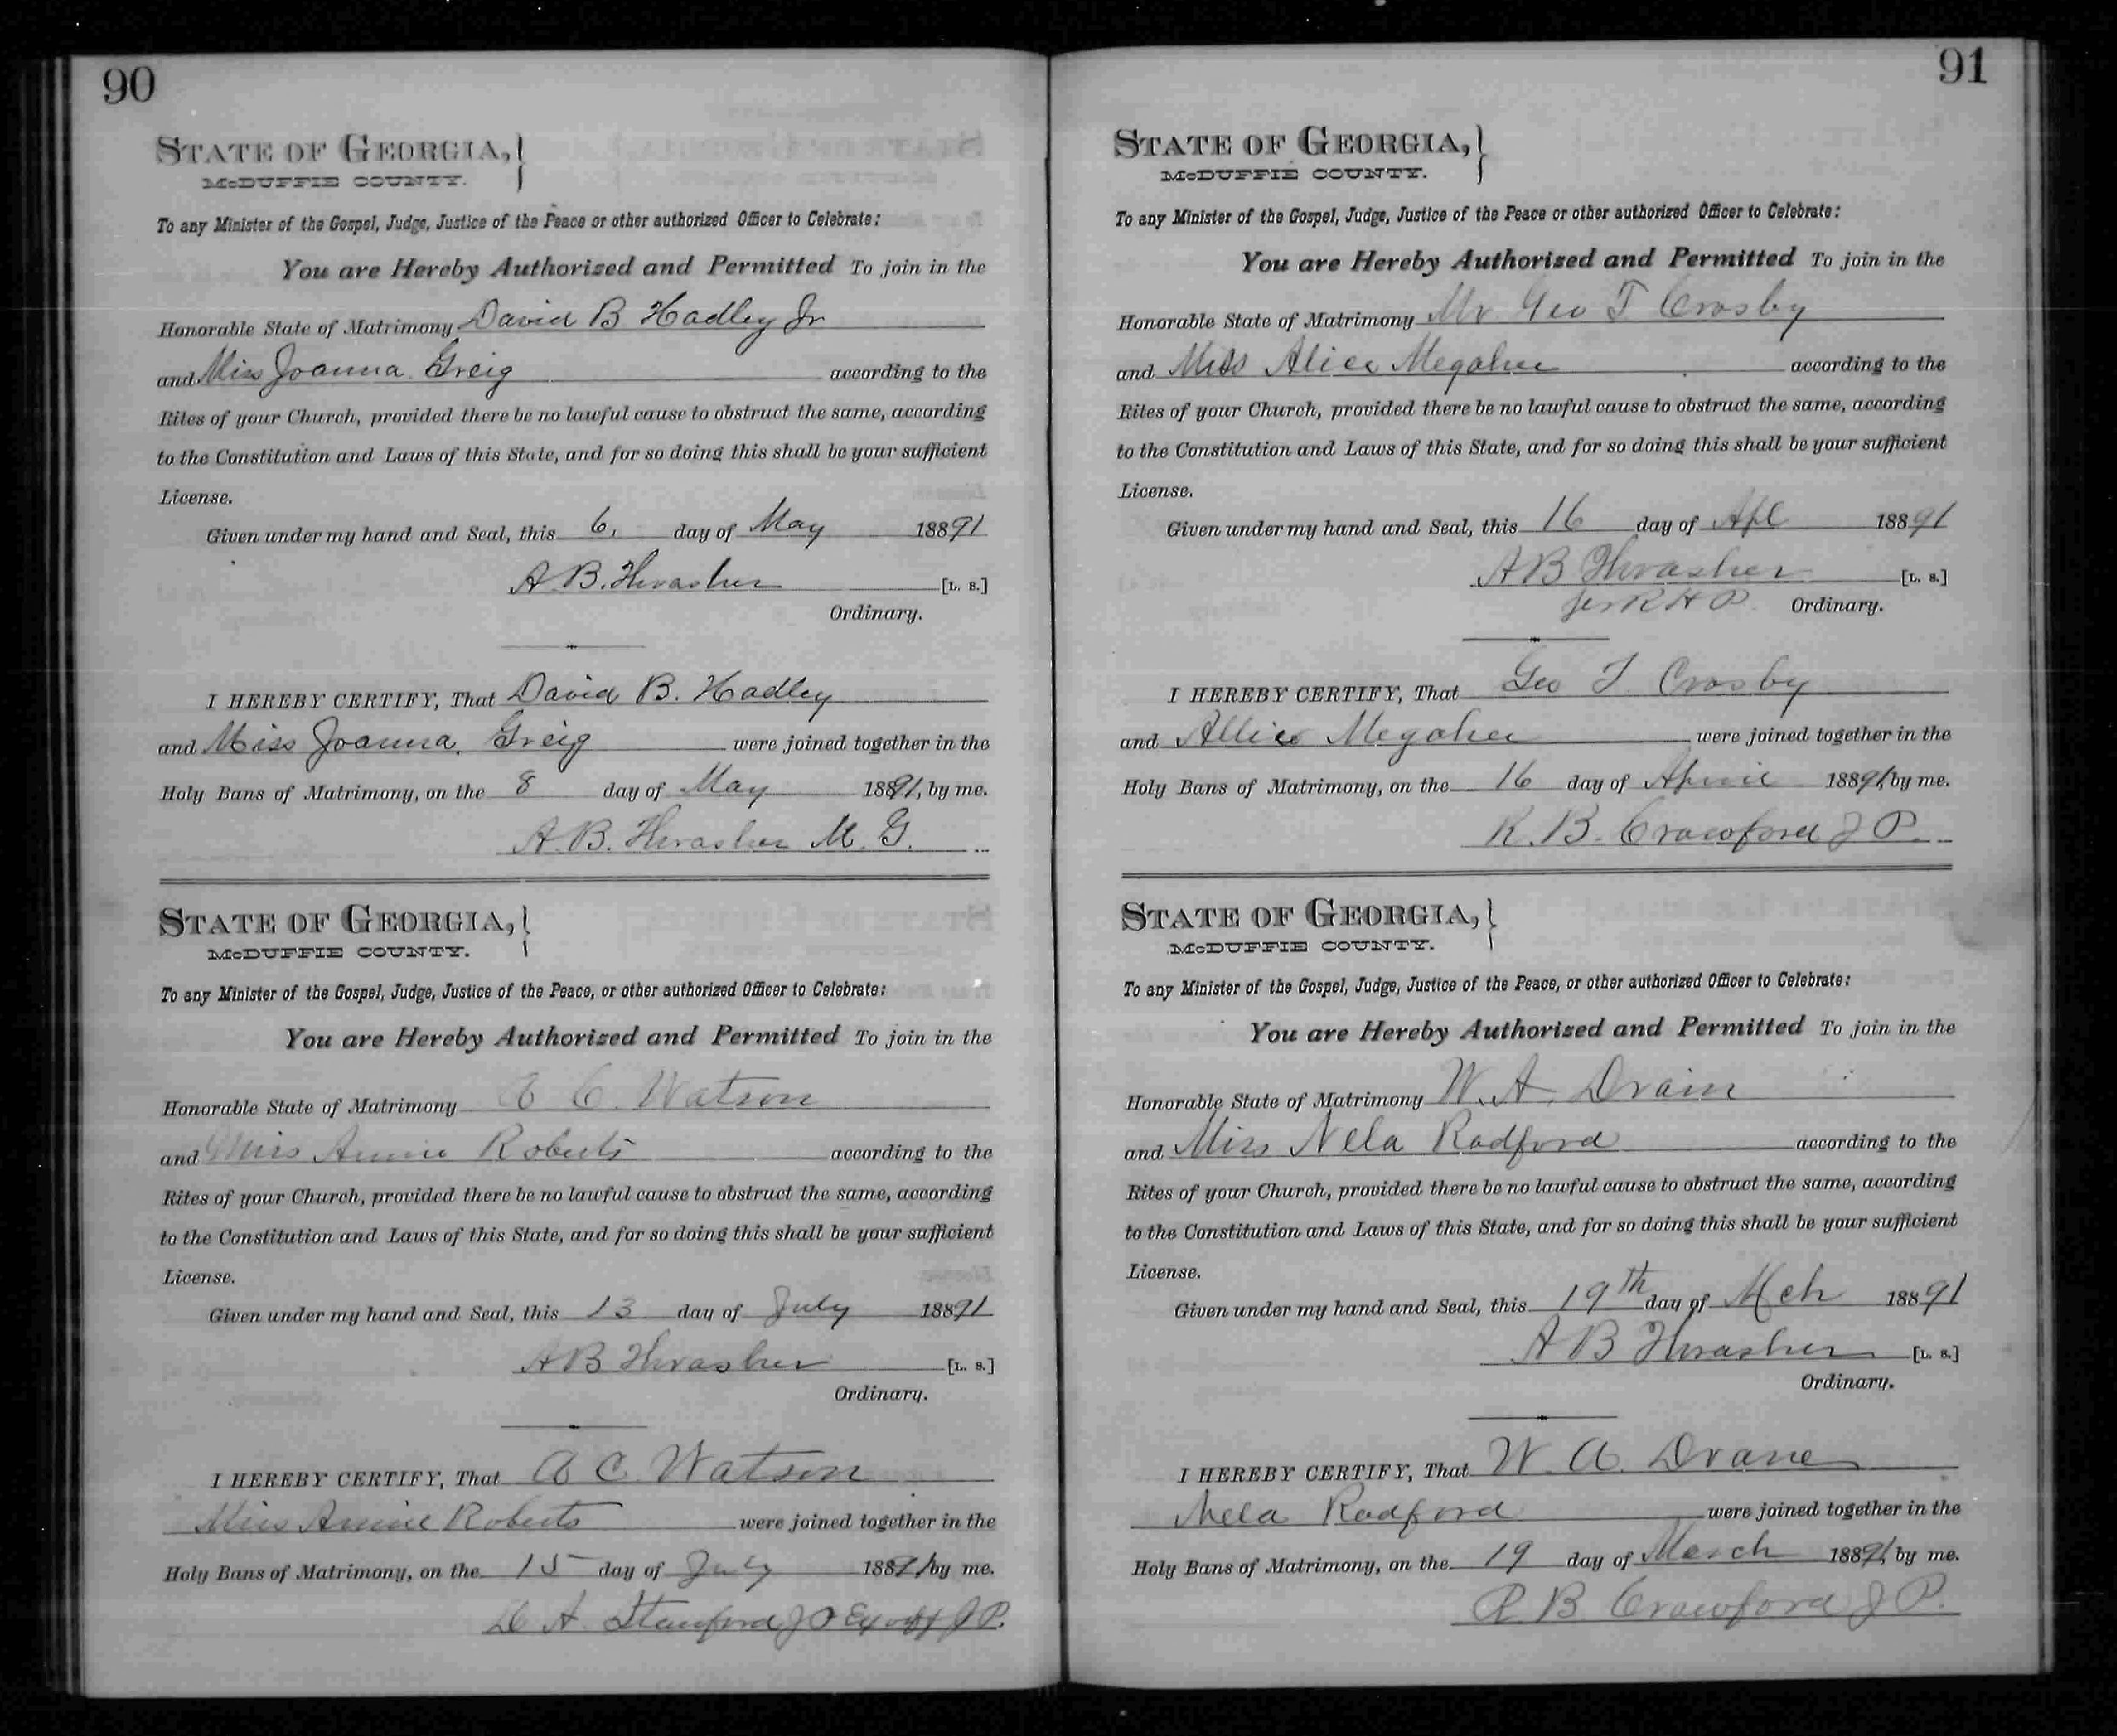 90
STATE OF GEORGIA,
McDUFFIE COUNTY.
To any Minister of the Gospel, Judge, Justice of the Peace or other authorized Officer to Celebrate:
You are Hereby Authorized and Permitted To join in the
Honorable State of Matrimony David B Hadley Jr
and Miss Joanna Greig according to the
Rites of your Church, provided there be no lawful cause to obstruct the same, according
to the Constitution and Laws of this State, and for so doing this shall be your sufficient
License.
Given under my hand and Seal, this 6, day of May 18891
A. B. Thrasher [L. S.]
Ordinary.
I HEREBY CERTIFY, That David B. Hadley
and Miss Joanna Greig were joined together in the
Holy Bans of Matrimony, on the 8 day of May 18891, by me.
A. B. Thrasher M. G.
STATE OF GEORGIA,
McDUFFIE COUNTY.
To any Minister of the Gospel, Judge, Justice of the Peace, or other authorized Officer to Celebrate:
You are Hereby Authorized and Permitted To join in the
Honorable State of Matrimony C. Watson
and Miss Annie Roberts according to the
Rites of your Church, provided there be no lawful cause to obstruct the same, according
to the Constitution and Laws of this State, and for so doing this shall be your sufficient
License.
Given under my hand and Seal, this 13 day of July 18891
A B Thrasher [L. S.]
Ordinary.
I HEREBY CERTIFY, That C. Watson
Miss Annie Roberts were joined together in the
Holy Bans of Matrimony, on the 15 day of July 18891 by me.
A. Stanford J P
91
STATE OF GEORGIA,
McDUFFIE COUNTY.
To any Minister of the Gospel, Judge, Justice of the Peace or other authorized Officer to Celebrate:
You are Hereby Authorized and Permitted To join in the
Honorable State of Matrimony Mr Geo T Crosby
and Miss Alice Megahee according to the
Rites of your Church, provided there be no lawful cause to obstruct the same, according
to the Constitution and Laws of this State, and for so doing this shall be your sufficient
License.
Given under my hand and Seal, this 16 day of Apl 18891
A B Thrasher [L. S.]
per R H P Ordinary.
I HEREBY CERTIFY, That Geo T. Crosby
and Allice Megahee were joined together in the
Holy Bans of Matrimony, on the 16 day of April 18891, by me.
R. B. Crawford J P.
STATE OF GEORGIA,
McDUFFIE COUNTY.
To any Minister of the Gospel, Judge, Justice of the Peace, or other authorized Officer to Celebrate:
You are Hereby Authorized and Permitted To join in the
Honorable State of Matrimony W. A. Drain
and Miss Nela Radford according to the
Rites of your Church, provided there be no lawful cause to obstruct the same, according
to the Constitution and Laws of this State, and for so doing this shall be your sufficient
License.
Given under my hand and Seal, this 19th day of Mch 18891
A B Thrasher [L. S.]
Ordinary.
I HEREBY CERTIFY, That W. A. Drane
Nela Radford were joined together in the
Holy Bans of Matrimony, on the 19 day of March 18891, by me.
R. B Crawford J P.